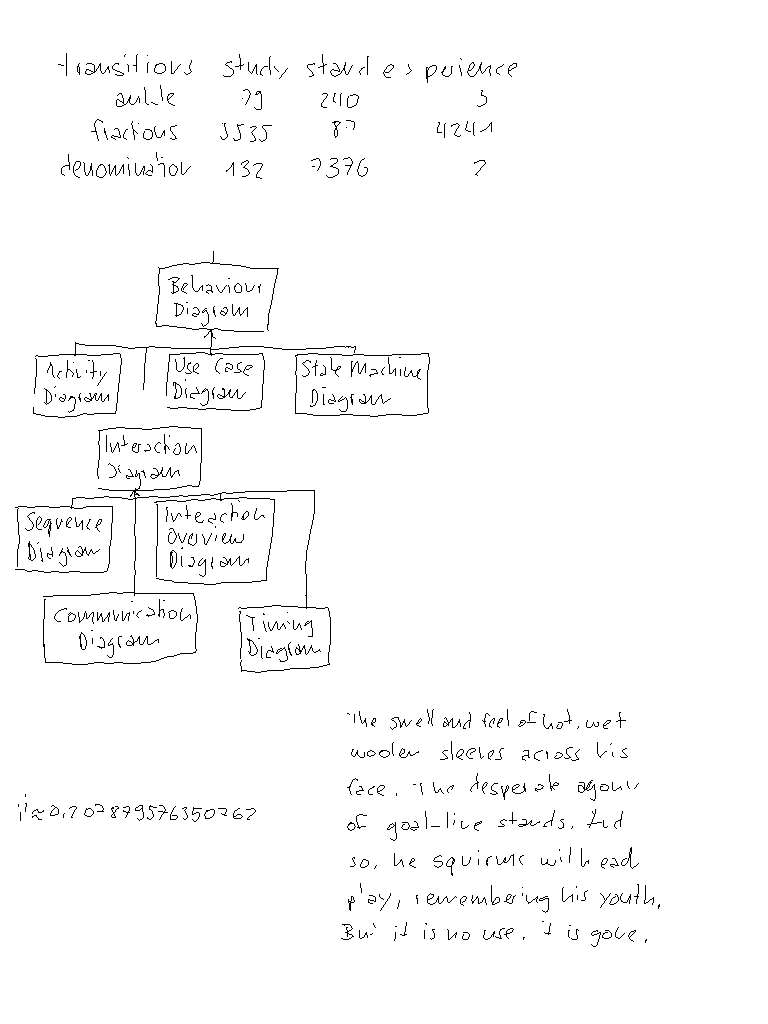 transitions study stand experience
ankle 79 240 3
fractious 3535 87 4241
denomination 132 7376 7
Behaviour
Diagram
Activity
Diagram
Use Case
Diagram
State Machine
Diagram
Interaction
Diagram
Sequence
Diagram
Interaction
Overview
Diagram
Communication
Diagram
Timing
Diagram
The smell and feel of hot, wet
woolen sleeves across his
face. The desperate agony
of goal-line stands. And
so, he squirms with each
play, remembering his youth.
But it is no use. it is gone.
i^i≈0.207879576350762